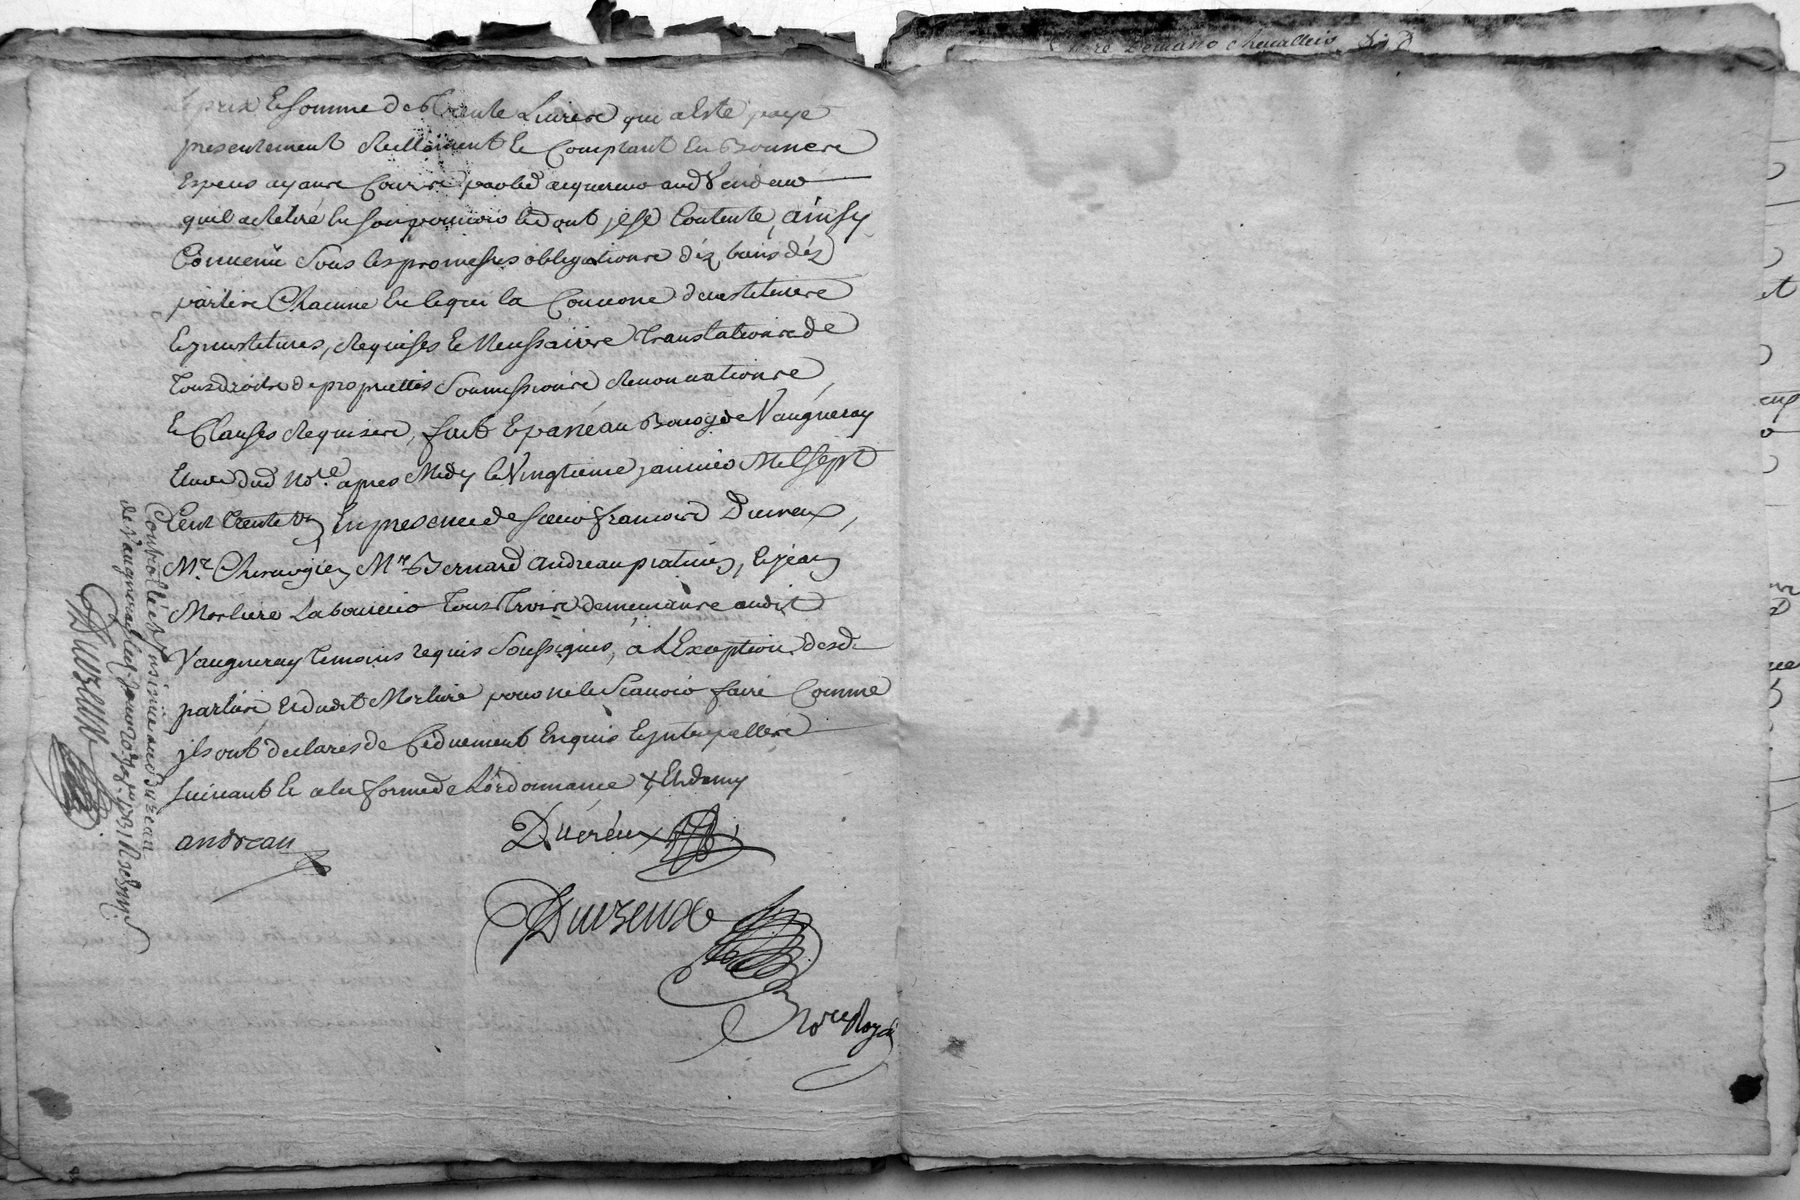 Le prix et somme de trente Livres que a Esté payé
presentement reellement et Comptant En Bonnere
Especes ayant Cours par led acquereur aud Vendeur
quil a Retiré En son pouvoir Et dont jl se Contente, ainsy
Convenu Sous les promesses obligations dés biens dés
parties Chacune En ce qui la Concerne
requises Et Neussaire Translations de
Tous droits de proprietes Soumissions Renonciations
Et Clauses Requises, fait Et passé au Bourg de Vaugneray
Etude dud Nore apres Midy le Vingtieme janvier Mil sept
Cent trente Un En presence de sieur françois Ducreux,
Mre Chirurgien Mre Bernard andreau praticien, Et jean
Morliere Laboureur Tous Trois demeurant audit
Vaugneray temoins requis Soussignés, a L'Exception desd
parties Et dudit Morliere pour ne le Scavoir faire Comme
jls ont declarés de Ce duement Enquis Et jnterpelleré
suivant Et a la forme de L'ordonnance
andreau
Ducreux
Ducreux
Nore Royal
Controllé et Insinué au Bureau
de Vaugneray le 20e janvier 1731 R
Ducreux